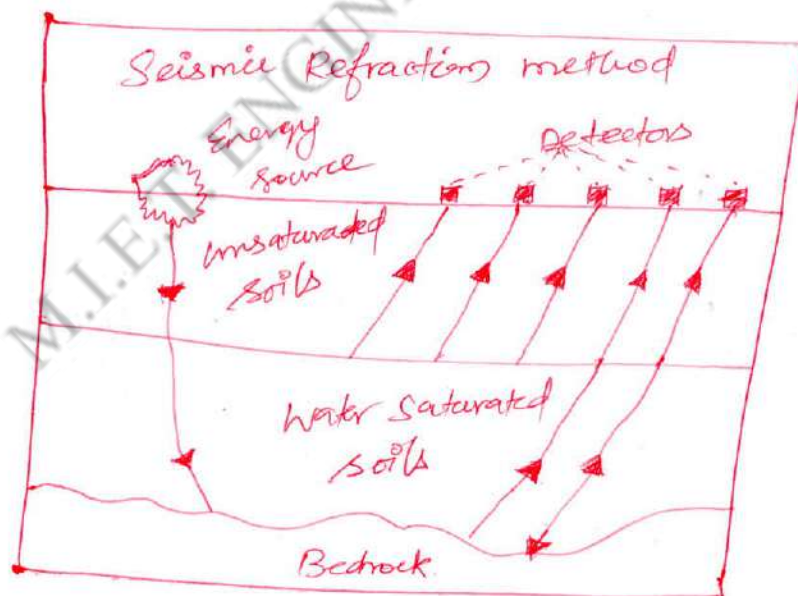 M.I.E.T. ENGIN
Seismic Refraction method
Energy
source
Detectors
unsaturaded
soils
Water saturated
soils
Bedrock.